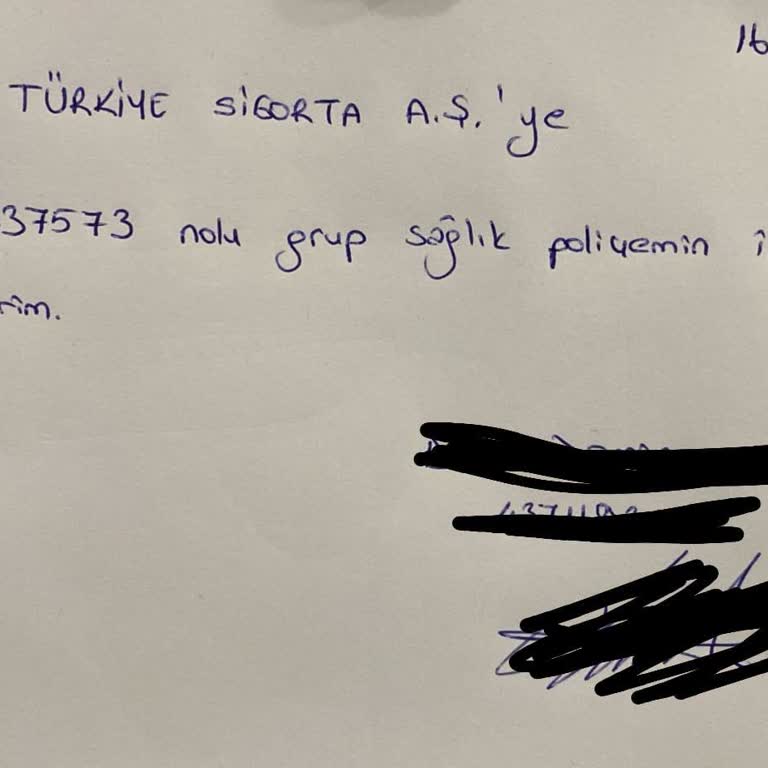 16
TÜRKİYE SİGORTA A.Ş.'ye
37573 nolu grup sağlık poliçemin i
rim.